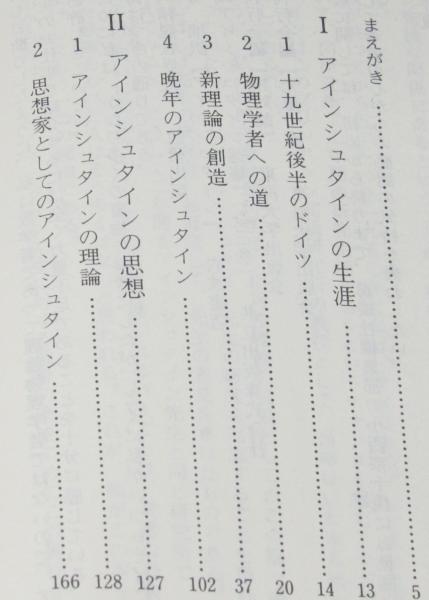 まえがき……5
Ⅰ アインシュタインの生涯……13
1 十九世紀後半のドイツ……14
2 物理学者への道……20
3 新理論の創造……37
4 晩年のアインシュタイン……102
Ⅱ アインシュタインの思想……127
1 アインシュタインの理論……128
2 思想家としてのアインシュタイン……166